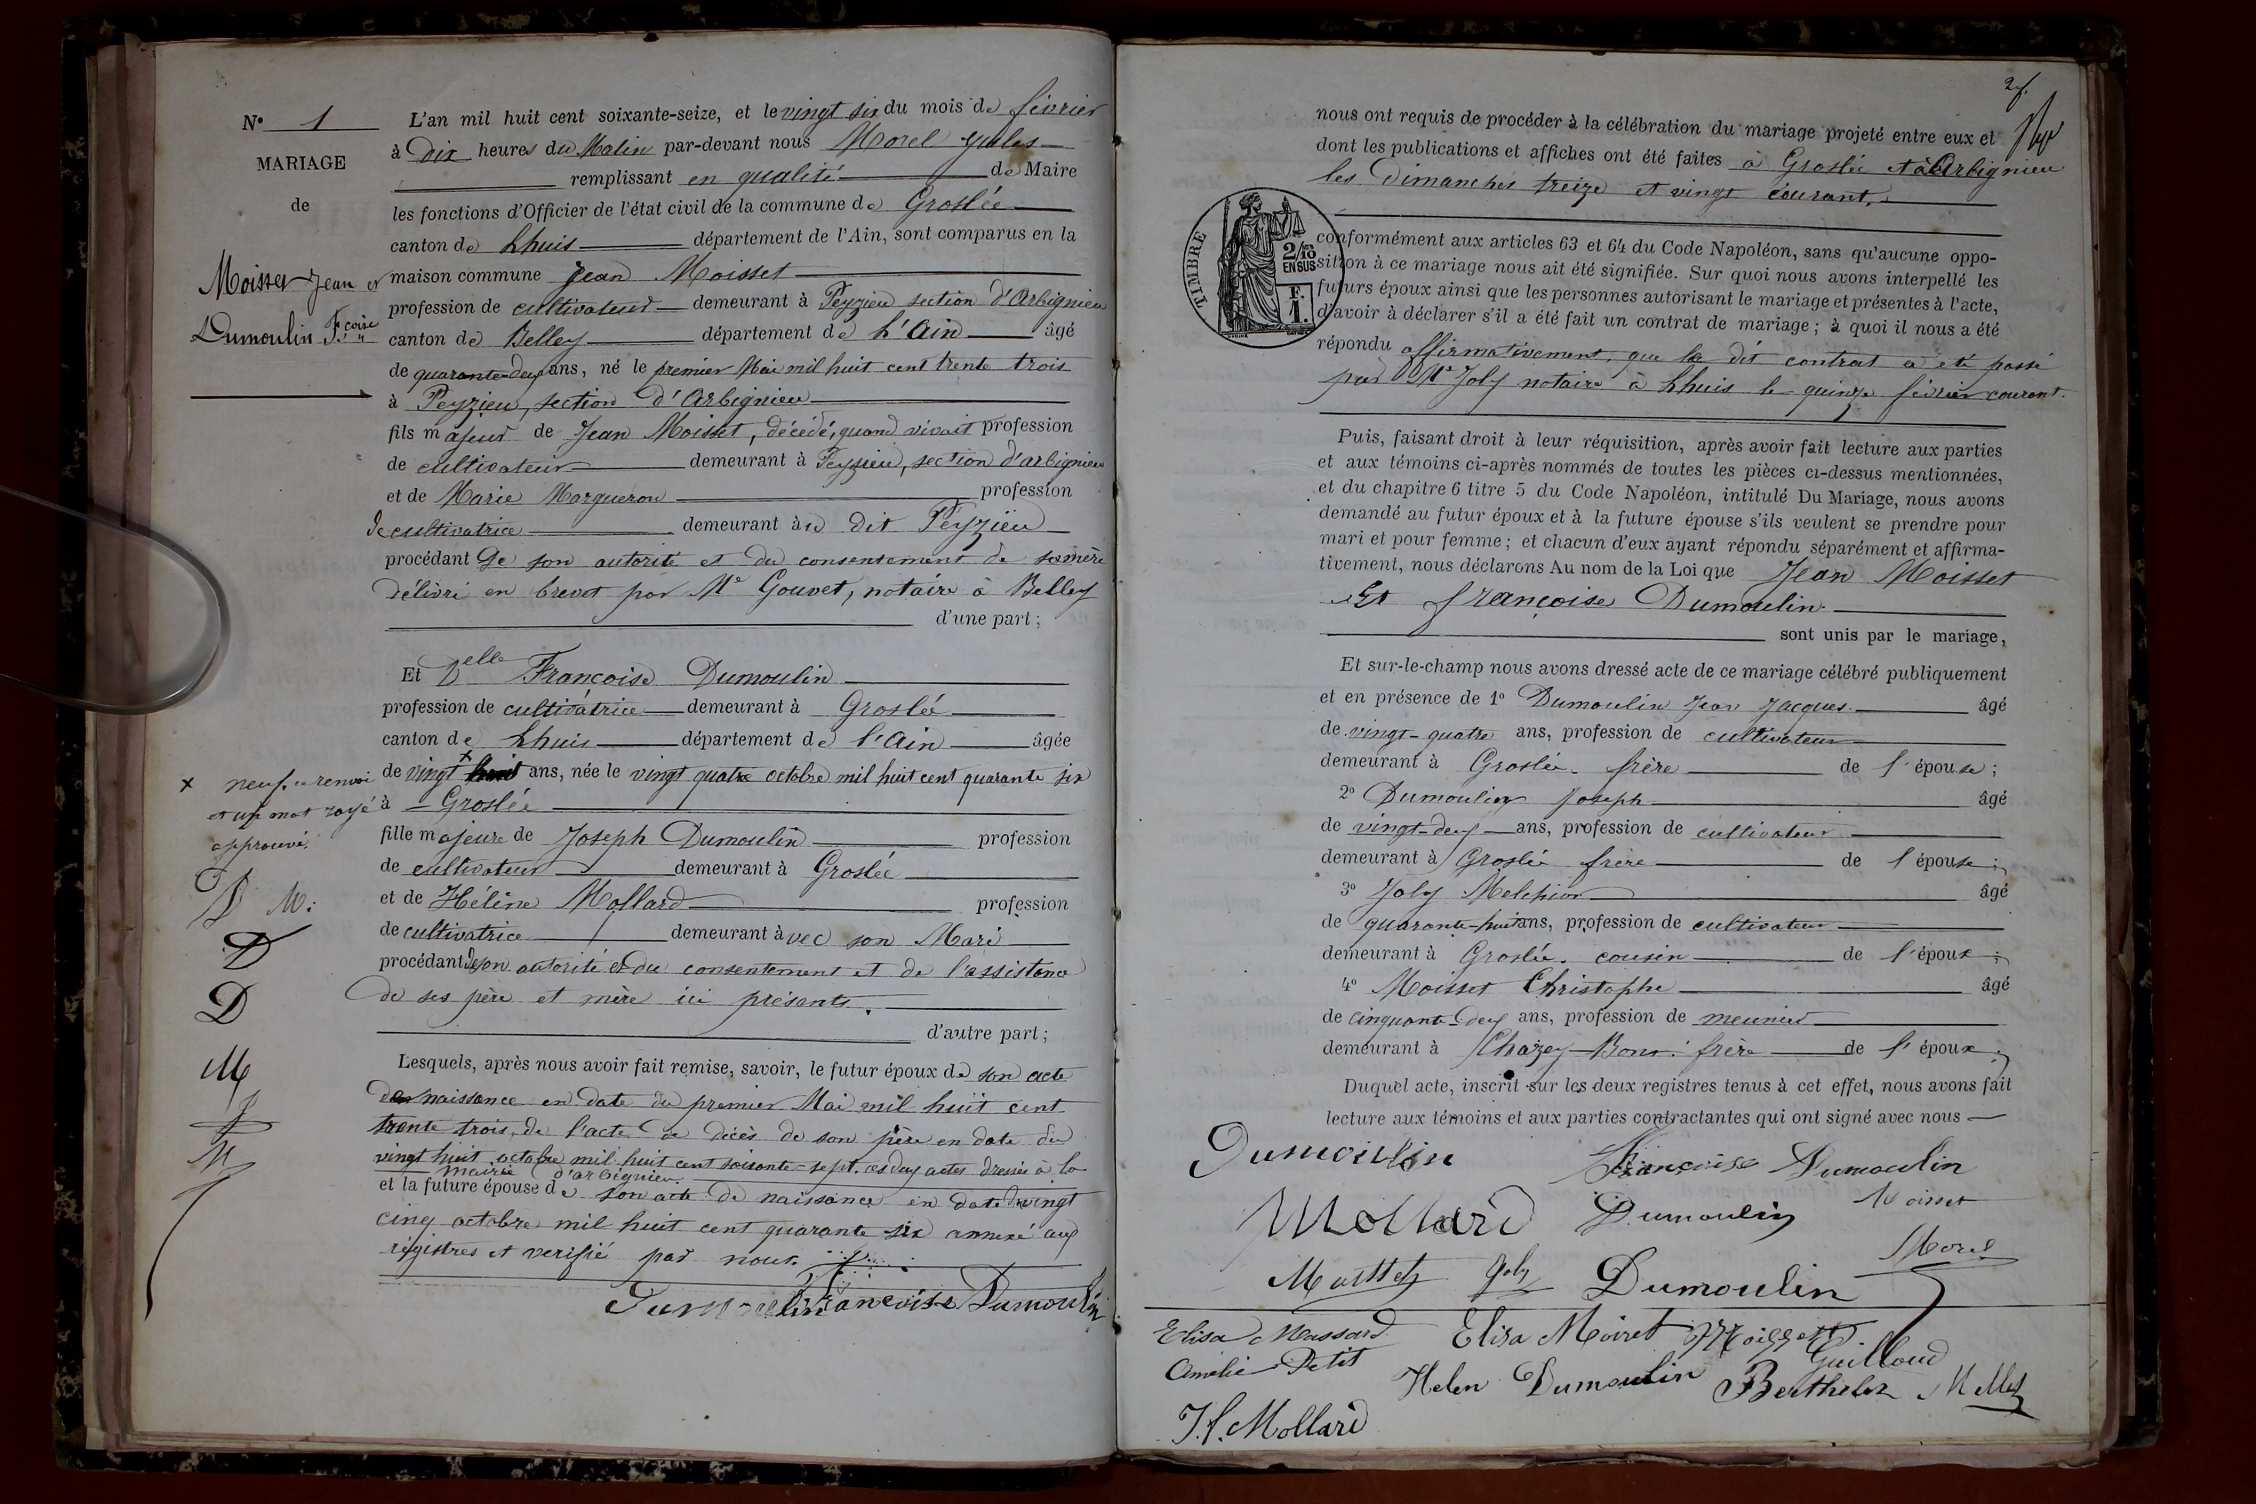 N° 1
MARIAGE
de
Moisset Jean et
Dumoulin F.çoise
L'an mil huit cent soixante-seize, et le vingt six du mois de février
à Dix heures du Matin par-devant nous Morel Jules
remplissant en qualité de Maire
les fonctions d'Officier de l'état civil de la commune de Groslée
canton de Lhuis département de l'Ain, sont comparus en la
maison commune Jean Moisset
profession de cultivateur demeurant à Peyzieu section d'Arbignieu
canton de Belley département de L'Ain âgé
de quarante-deux ans, né le premier Mai mil huit cent trente trois
à Peyzieu, section d'Arbignieu
fils majeur de Jean Moisset, décédé, quand vivait profession
de cultivateur demeurant à Peyzieu, section d'arbignieu
et de Marie Marguerou profession
de cultivatrice demeurant au dit Peyzieu
procédant De son autorité et du consentement de sa mère
délivré en brevet par Me Gouvet, notaire à Belley
d'une part;
Et Delle Françoise Dumoulin
profession de cultivatrice demeurant à Groslée
canton de Lhuis département de l'Ain âgée
de vingt × huit ans, née le vingt quatre octobre mil huit cent quarante six
à Groslée
fille majeure de Joseph Dumoulin profession
de cultivateur demeurant à Groslée
et de Hélène Mollard profession
de cultivatrice demeurant avec son Mari
procédant de son autorité et du consentement et de l'assistance
de ses père et mère ici présents.
d'autre part;
× neuf. ce renvoi
et un mot rayé
approuvé.
D M:
D
D
M
J
M
Lesquels, après nous avoir fait remise, savoir, le futur époux de son acte
de naissance en date du premier Mai mil huit cent
trente trois, de l'acte de décès de son père en date du
vingt huit octobre mil huit cent soixante-sept. ces deux actes dressés à la
mairie d'arbignieu.
et la future épouse de son acte de naissance en date du vingt
cinq octobre mil huit cent quarante six annexé aux
régistres et verifié par nous.
Dumoulin Françoise Dumoulin
2f.
nous ont requis de procéder à la célébration du mariage projeté entre eux et
dont les publications et affiches ont été faites à Groslée et à Arbignieu
les Dimanches treize et vingt courant.
TIMBRE
2/10
EN SUS
F.
1.
conformément aux articles 63 et 64 du Code Napoléon, sans qu'aucune oppo-
sition à ce mariage nous ait été signifiée. Sur quoi nous avons interpellé les
futurs époux ainsi que les personnes autorisant le mariage et présentes à l'acte,
d'avoir à déclarer s'il a été fait un contrat de mariage; à quoi il nous a été
répondu affirmativement, que le dit contrat a été passé
par Me Joly notaire à Lhuis le quinze février courant.
Puis, faisant droit à leur réquisition, après avoir fait lecture aux parties
et aux témoins ci-après nommés de toutes les pièces ci-dessus mentionnées,
et du chapitre 6 titre 5 du Code Napoléon, intitulé Du Mariage, nous avons
demandé au futur époux et à la future épouse s'ils veulent se prendre pour
mari et pour femme; et chacun d'eux ayant répondu séparément et affirma-
tivement, nous déclarons Au nom de la Loi que Jean Moisset
Et Françoise Dumoulin.
sont unis par le mariage,
Et sur-le-champ nous avons dressé acte de ce mariage célébré publiquement
et en présence de 1° Dumoulin Jean Jacques âgé
de vingt-quatre ans, profession de cultivateur
demeurant à Groslée. frère de l'épouse;
2° Dumoulin Joseph âgé
de vingt-deux ans, profession de cultivateur
demeurant à Groslée frère de l'épouse;
3° Joly Melchior âgé
de quarante-huit ans, profession de cultivateur
demeurant à Groslée. cousin de l'époux;
4° Moisset Christophe âgé
de cinquante-deux ans, profession de meunier
demeurant à Chazey-Bons. frère de l'époux;
Duquel acte, inscrit sur les deux registres tenus à cet effet, nous avons fait
lecture aux témoins et aux parties contractantes qui ont signé avec nous
Dumoulin Françoise Dumoulin
Mollard Dumoulin Moisset
Joly Dumoulin Morel
Elisa Massard Elisa Moiret
Amélie Petit Guilloud
Helen Dumoulin Berthelet
J.f. Mollard